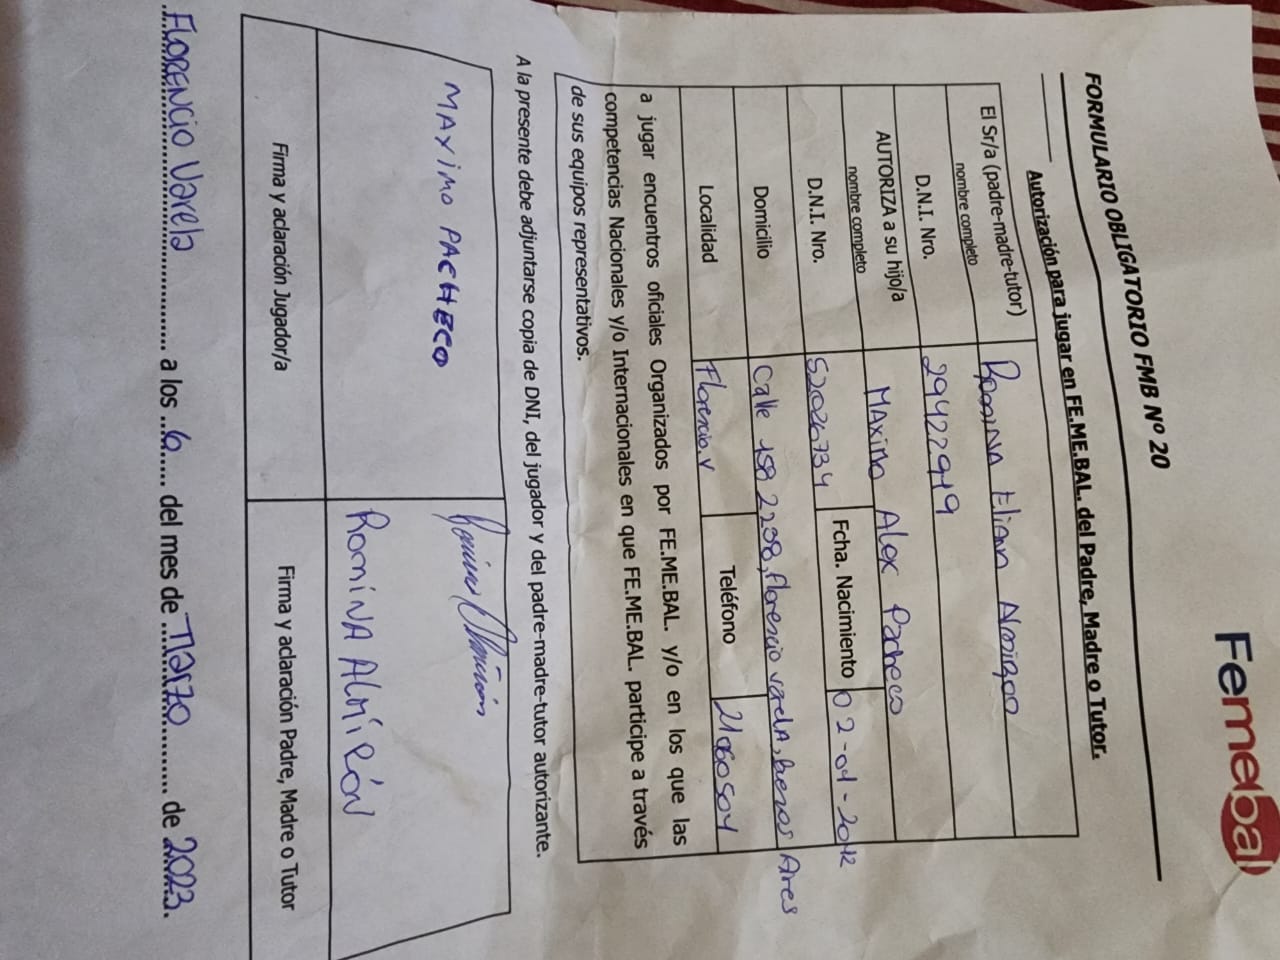 Femebal
FORMULARIO OBLIGATORIO FMB Nº 20
Autorización para jugar en FE.ME.BAL. del Padre, Madre o Tutor.
El Sr/a (padre-madre-tutor) nombre completo Romina Eliana
D.N.I. Nro. 29422919
AUTORIZA a su hijo/a nombre completo MAximo Alex Pacheco
D.N.I. Nro. 52026734 Fcha. Nacimiento 02-01-2012
Domicilio Calle 158 2238, florencio varelA, buenos Aires
Localidad Florencio.V Teléfono 21060504
a jugar encuentros oficiales Organizados por FE.ME.BAL. y/o en los que las
competencias Nacionales y/o Internacionales en que FE.ME.BAL. participe a través
de sus equipos representativos.
A la presente debe adjuntarse copia de DNI, del jugador y del padre-madre-tutor autorizante.
MAXiMO PACHECO
RomiNA AlmiRóN
Firma y aclaración Jugador/a Firma y aclaración Padre, Madre o Tutor
FLORENCIO Varela a los 6 del mes de Marzo de 2023.